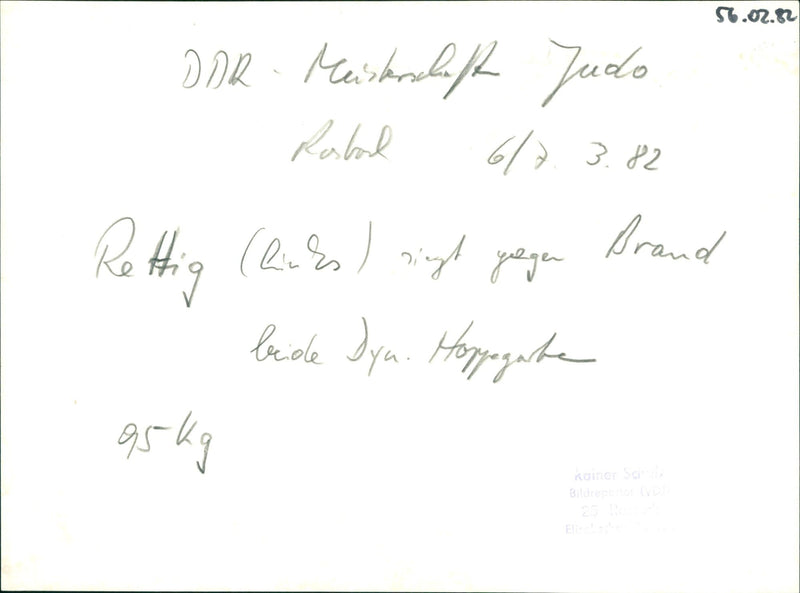 56.02.82
DDR - Meisterschaften Judo
Rostock 6/7. 3. 82
Rettig (links) siegt gegen Brand
beide Dyn. Hoppegarten
95 Kg
Rainer
Bildreporter (VDJ)
25